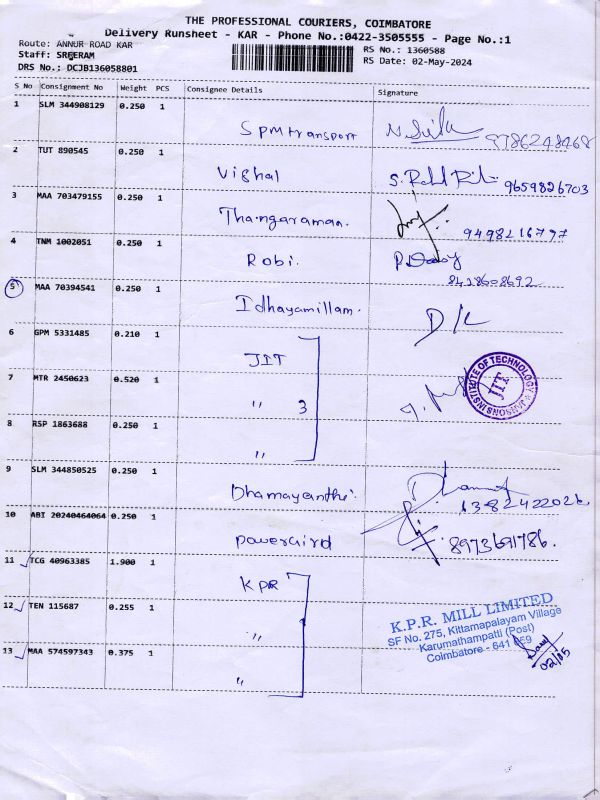 THE PROFESSIONAL COURIERS, COIMBATORE
Delivery Runsheet - KAR - Phone No.:0422-3505555 - Page No.:1
Route: ANNUR ROAD KAR
Staff: SREERAM
DRS No.: DCJB136058801
RS No.: 1360588
RS Date: 02-May-2024
S No Consignment No Weight PCS Consignee Details Signature
1 SLM 344908129 0.250 1 SPM transport 9786248468
2 TUT 890545 0.250 1 Vishal 9659826703
3 MAA 703479155 0.250 1 Thangaraman. 9498216797
4 TNM 1002051 0.250 1 Robi.
5 MAA 70394541 0.250 1 Idhayamillam. D/L
6 GPM 5331485 0.210 1 JIT
7 MTR 2450623 0.520 1 " 3
JANSONS INSTITUTE OF TECHNOLOGY
JIT
8 RSP 1863688 0.250 1 "
9 SLM 344850525 0.250 1 Dhamayanthi.
10 ABI 20240464064 0.250 1 powerGird 8973691786.
11 TCG 40963385 1.900 1 KPR
12 TEN 115687 0.255 1 "
13 MAA 574597343 0.375 1 "
K.P.R. MILL LIMITED
SF No. 275, Kittampalayam Village
Karumathampatti (Post)
Coimbatore - 641 659
02/05